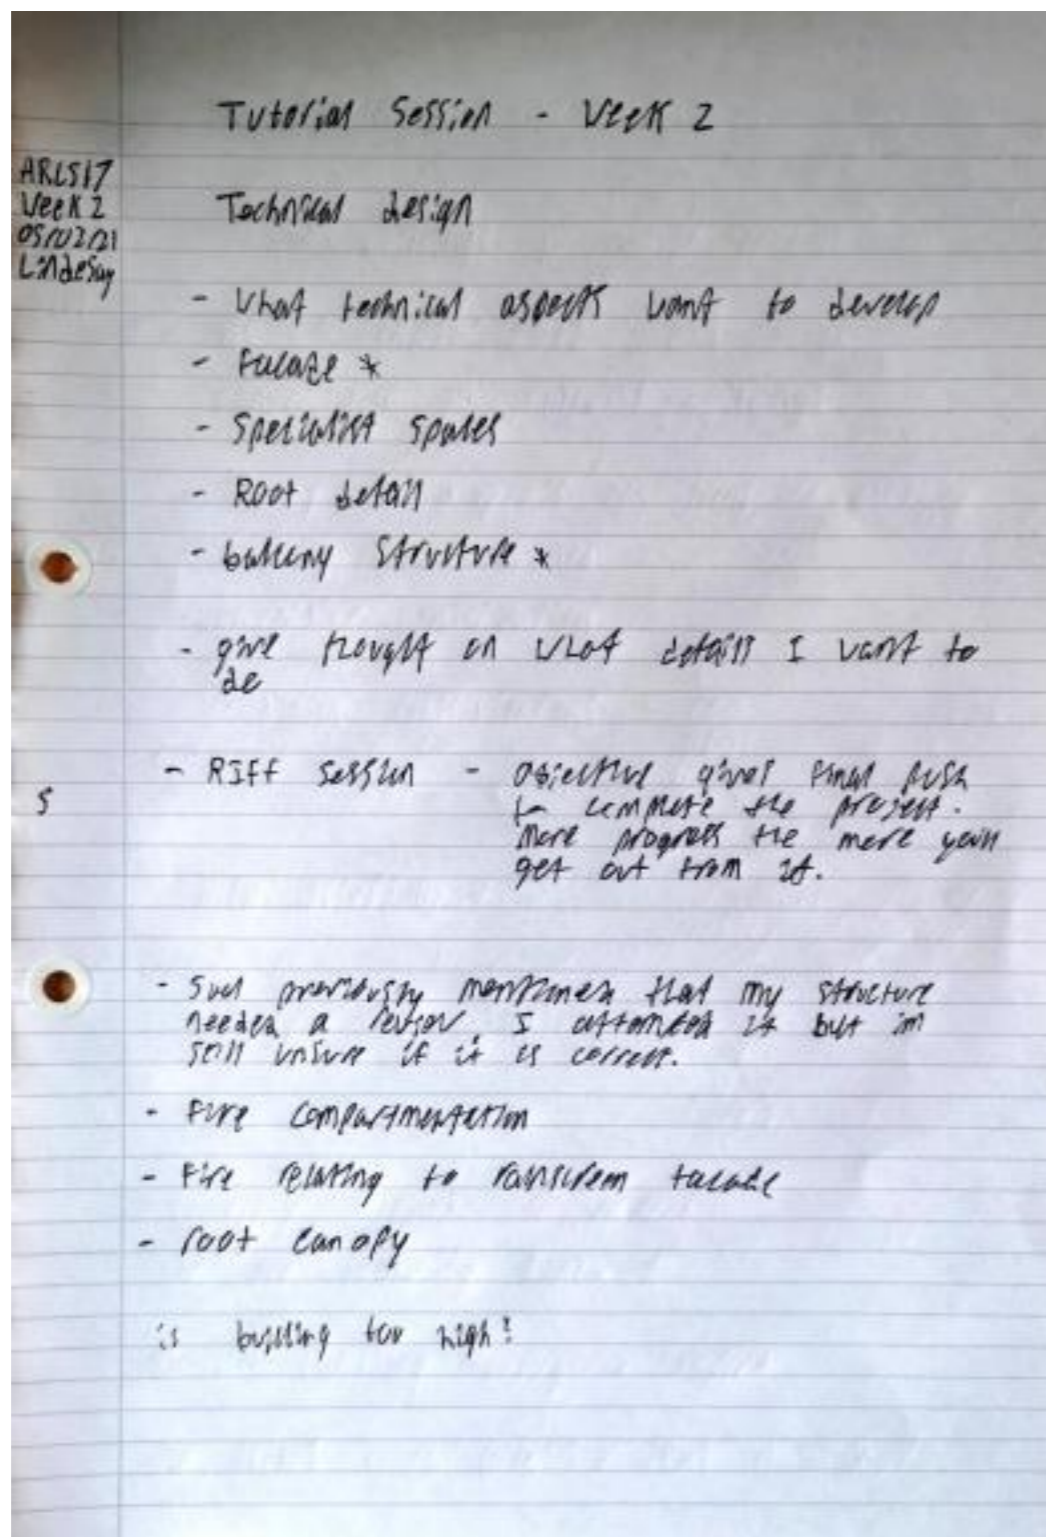 Tutorial Session - Week 2
ARC517
Week 2
Lindesay
Technical design
- What technical aspects want to develop
- Facade *
- Specialist spaces
- Roof detail
- balcony structure *
- give thought on what details I want to
do
- RIFF session - Objective gives final push
to complete the project.
S
More progress the more you
get out from it.
- previously mentioned that my structure
needed a I attempted it but im
still unsure if it is correct.
- Fire compartmentation
- Fire relating to rainscreen facade
- roof canopy
is building too high?